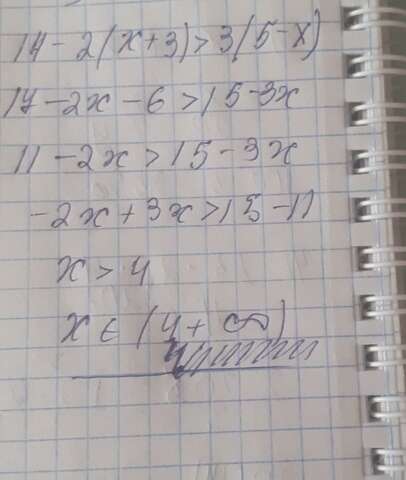 17 - 2(x+3) > 3(5-x)
17 - 2x - 6 > 15 - 3x
11 - 2x > 15 - 3x
-2x + 3x > 15 - 11
x > 4
x ∈ (4 + ∞)